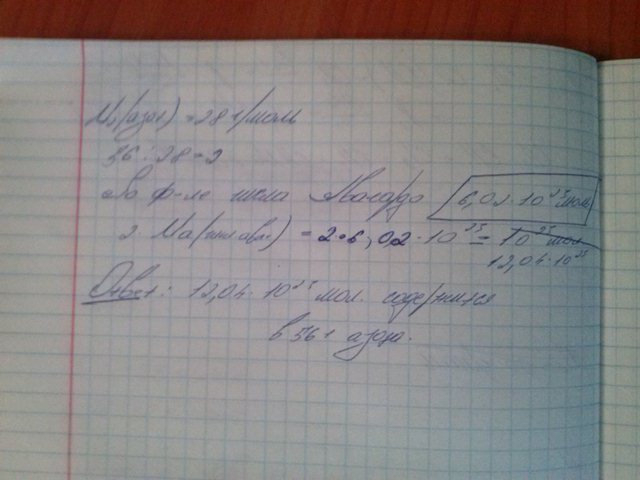 M(азот) = 28 г/моль
56 : 28 = 2
По ф-ле числа Авогадро 6,02 · 10²³ моль
2 · Na(число авог.) = 2 · 6,02 · 10²³ =
12,04 · 10²³
Ответ: 12,04 · 10²³ мол. содержится
в 56 г азота.